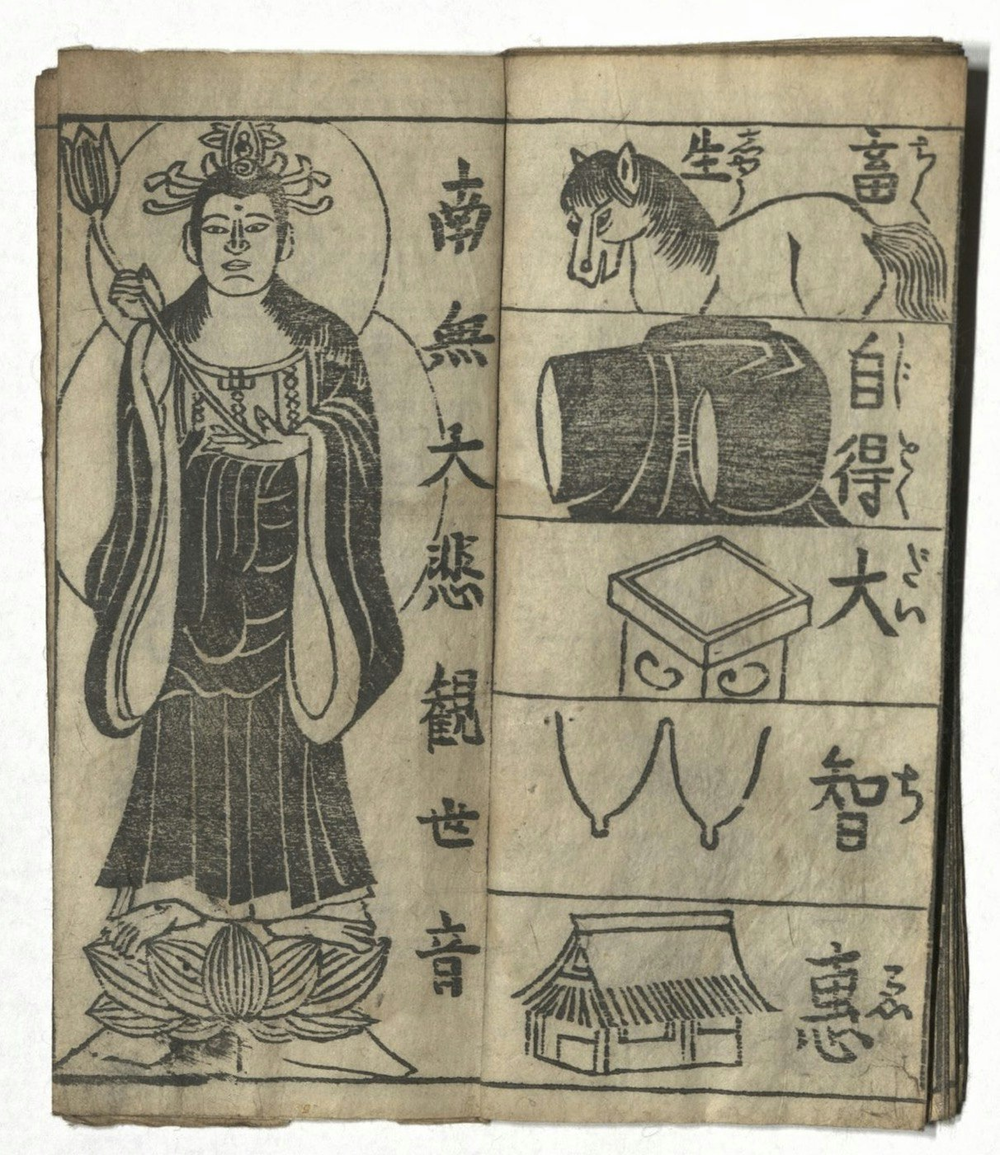 畜生
ちく
自得
じとく
大
だい
智
ち
惠
ゑ
南無大悲観世音